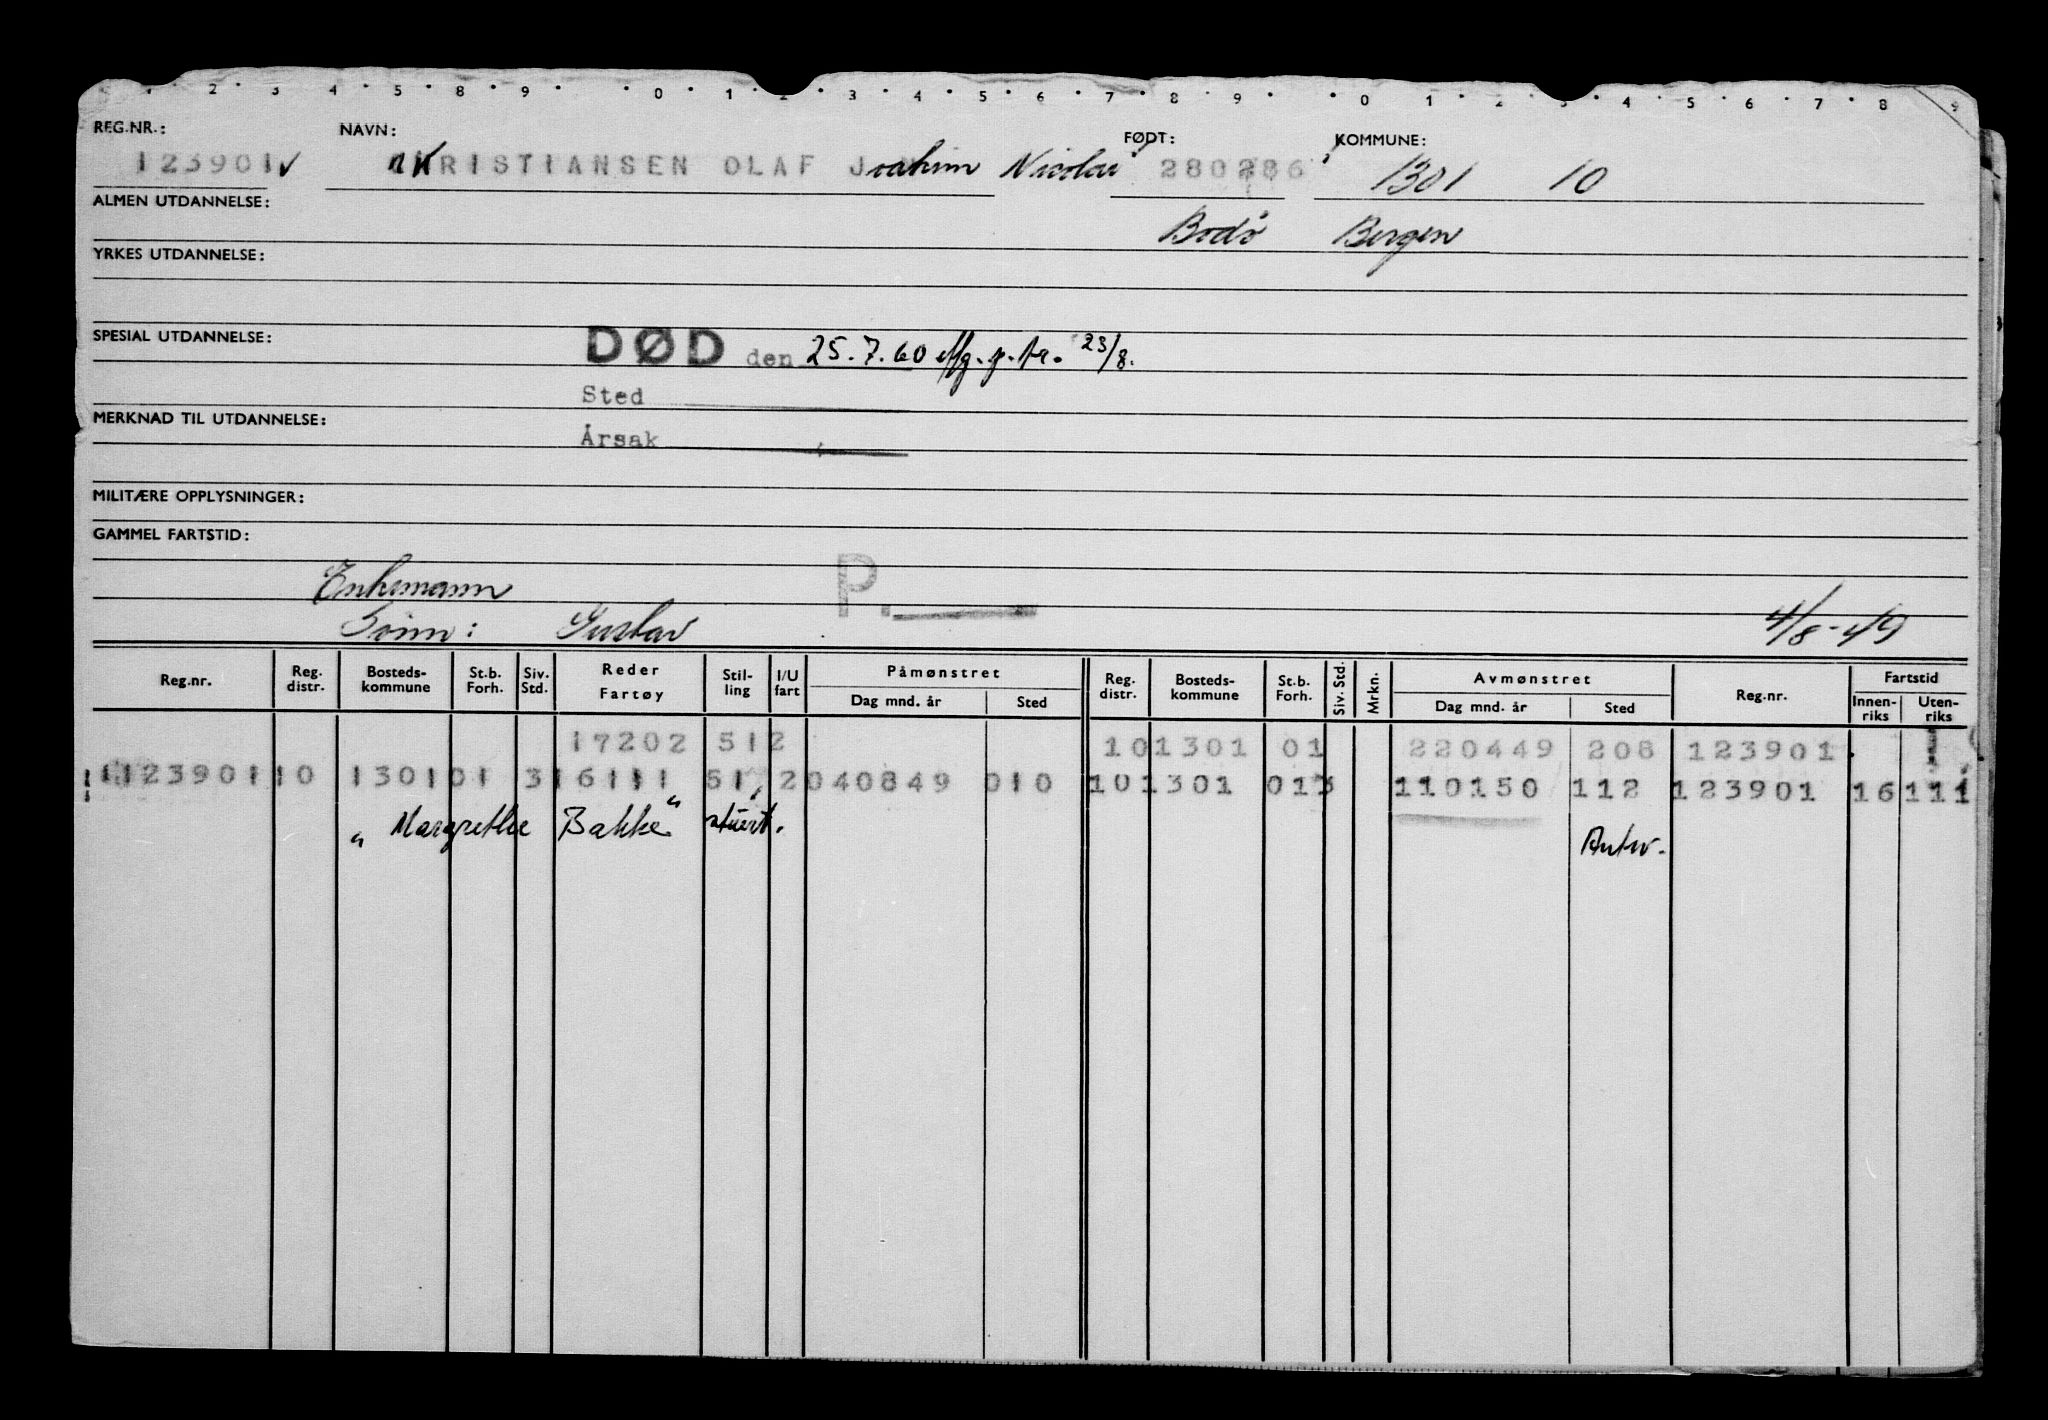 1 · 2 · 3 4 · 5 · 8 · 9 · · 0 · 1 · 2 · 3 · 4 · 5 · 6 · 7 · 8 · 9 · · 0 · 1 · 2 · 3 · 4 · 5 · 6 · 7 · 8 9
REG.NR.: NAVN: FØDT: KOMMUNE:
123901 ✓ KRISTIANSEN OLAF Joachim Nicolai 280286 1301 10
ALMEN UTDANNELSE:
Bodø Bergen
YRKES UTDANNELSE:
SPESIAL UTDANNELSE:
DØD den 25.7.60 p. tr. 23/8.
Sted
MERKNAD TIL UTDANNELSE:
Årsak
MILITÆRE OPPLYSNINGER:
GAMMEL FARTSTID:
Enkemann P.
Sønn: Gustav 4/8-49
Reg.nr. Reg. distr. Bosteds-kommune St.b. Forh. Siv. Std. Reder Fartøy Stil-ling I/U fart Påmønstret Dag mnd. år Sted Reg. distr. Bosteds-kommune St.b. Forh. Siv. Std. Mrkn. Avmønstret Dag mnd. år Sted Reg.nr. Fartstid Innen-riks Uten-riks
17202 512 10 1301 01 220449 208 123901
123901 10 1301 01 3 16111 51 2 040849 010 10 1301 01 3 110150 112 123901 16 111
"Margrethe Bakke" stuert. Antw.